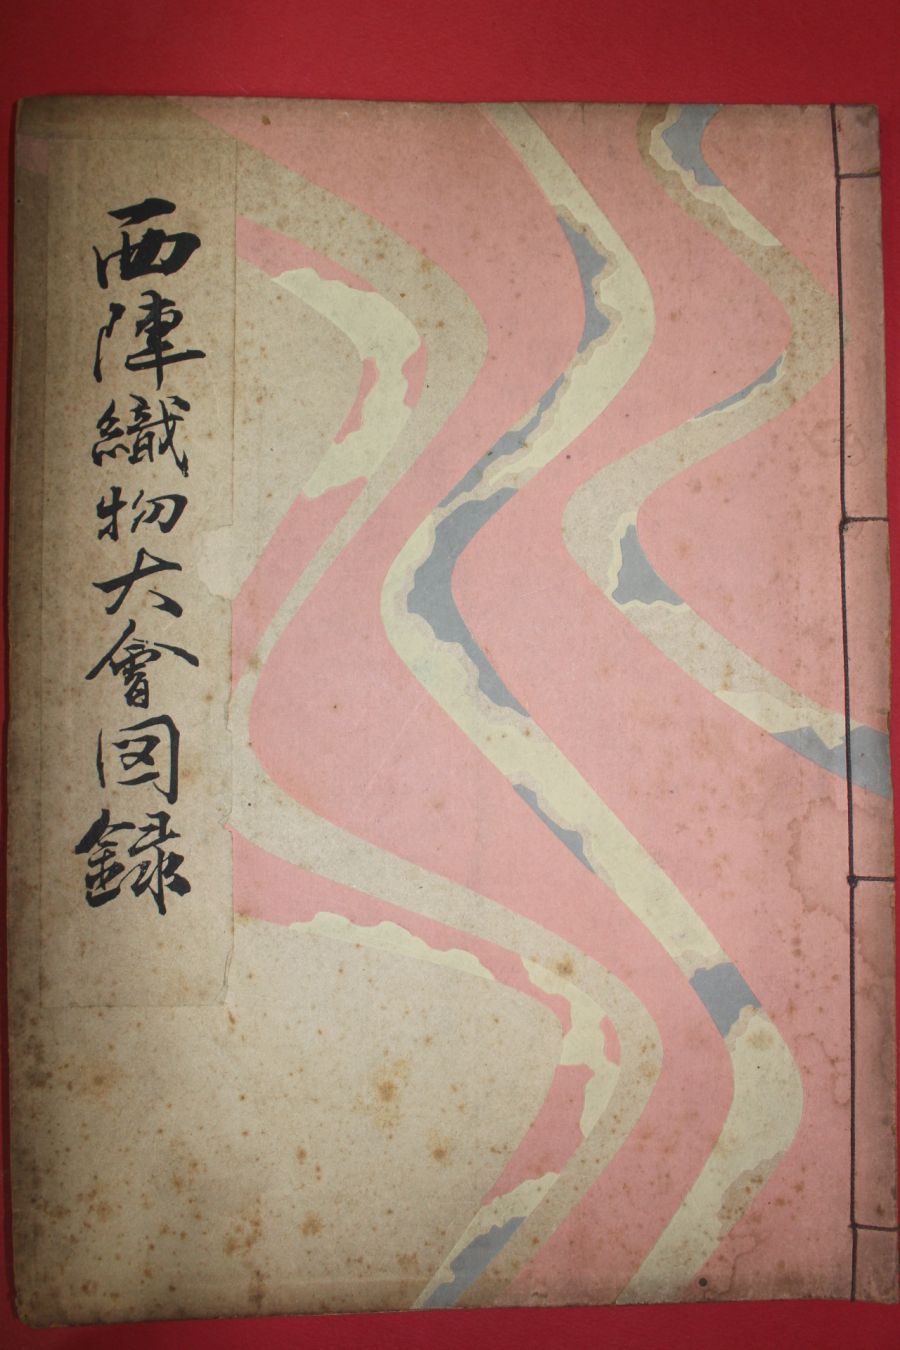 西陣織物大會図録